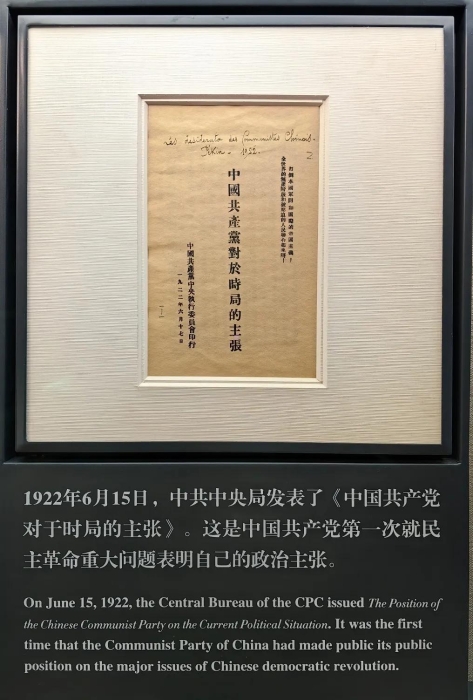 Les desiderata des Communistes Chinois.
Pékin - 1922.
中國共產黨對於時局的主張
中國共產黨中央執行委員會印行
一九二二年六月十七日
1922年6月15日，中共中央局发表了《中国共产党
对于时局的主张》。这是中国共产党第一次就民
主革命重大问题表明自己的政治主张。
On June 15, 1922, the Central Bureau of the CPC issued The Position of
the Chinese Communist Party on the Current Political Situation. It was the first
time that the Communist Party of China had made public its public
position on the major issues of Chinese democratic revolution.